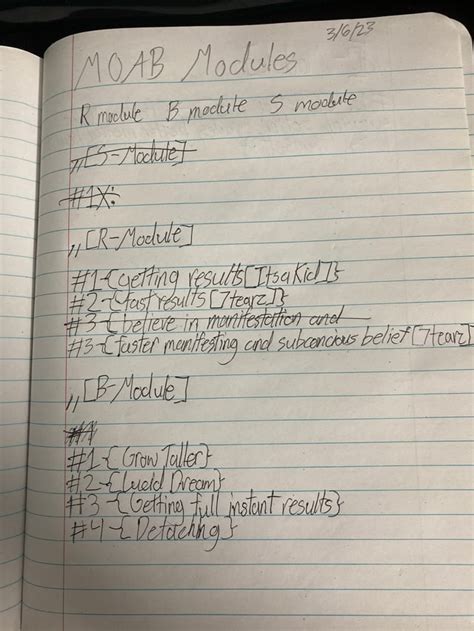 3/6/23
MOAB Modules
R module B module S module
,,[S-Module]
#1X:
,,[R-Module]
#1-{getting results[ItsaKid]}
#2-{fast results[7tearz]}
#3-{believe in manifestation and
#3-{faster manifesting and subconcious belief[7tearz]
,,[B-Module]
#1
#1-{Grow Taller}
#2-{Lucid Dream}
#3-{Getting full instant results}
#4-{Detatching}